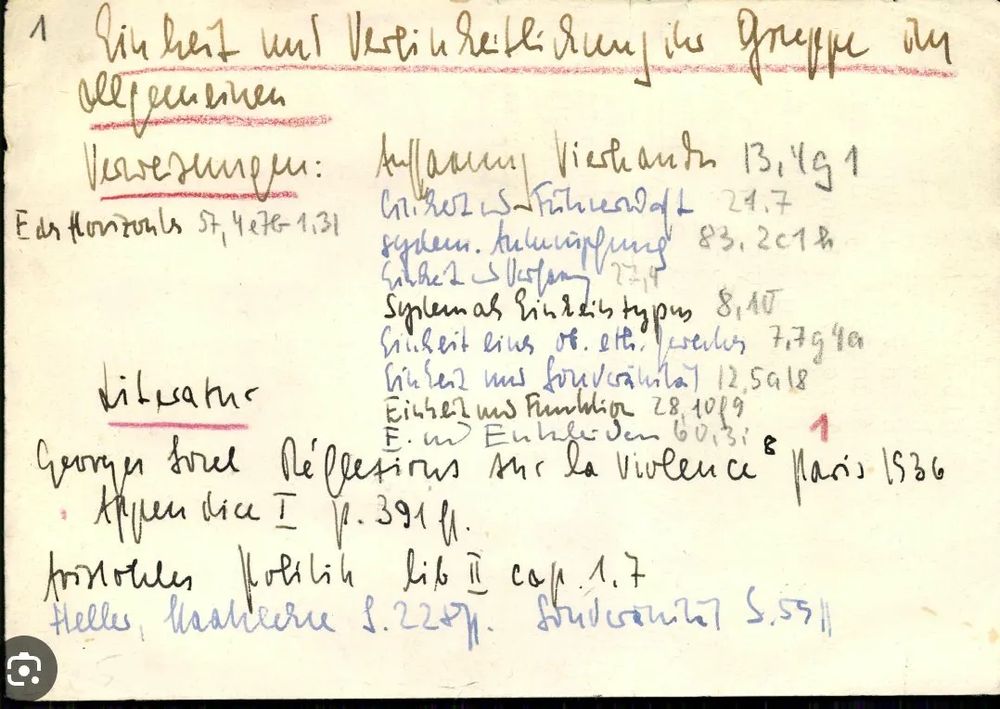 1 Einheit und Vereinheitlichung der Gruppe im
allgemeinen
Verweisungen: Auffassung Vierkandts 13,4g1
E des Horizontes 57,4e7G-1.31
Einheit und Führerschaft 21.7
system. Anknüpfung 83.2c1h
Einheit und Verfassung 27,4
System als Einheitstypus 8,10
Einheit eines ob. eth. Zweckes 7,7g4a
Einheit und Souveränität 12,5a18
Literatur
Einheit und Funktion 28,10f9
E. und Entscheiden 60,3i 1
Georges Sorel Réflexions sur la violence 8 Paris 1936
Appendice I p. 391 ff.
Aristoteles Politik lib II cap. 1.7
Heller, Staatslehre S. 228ff. Souveränität S. 59 ff